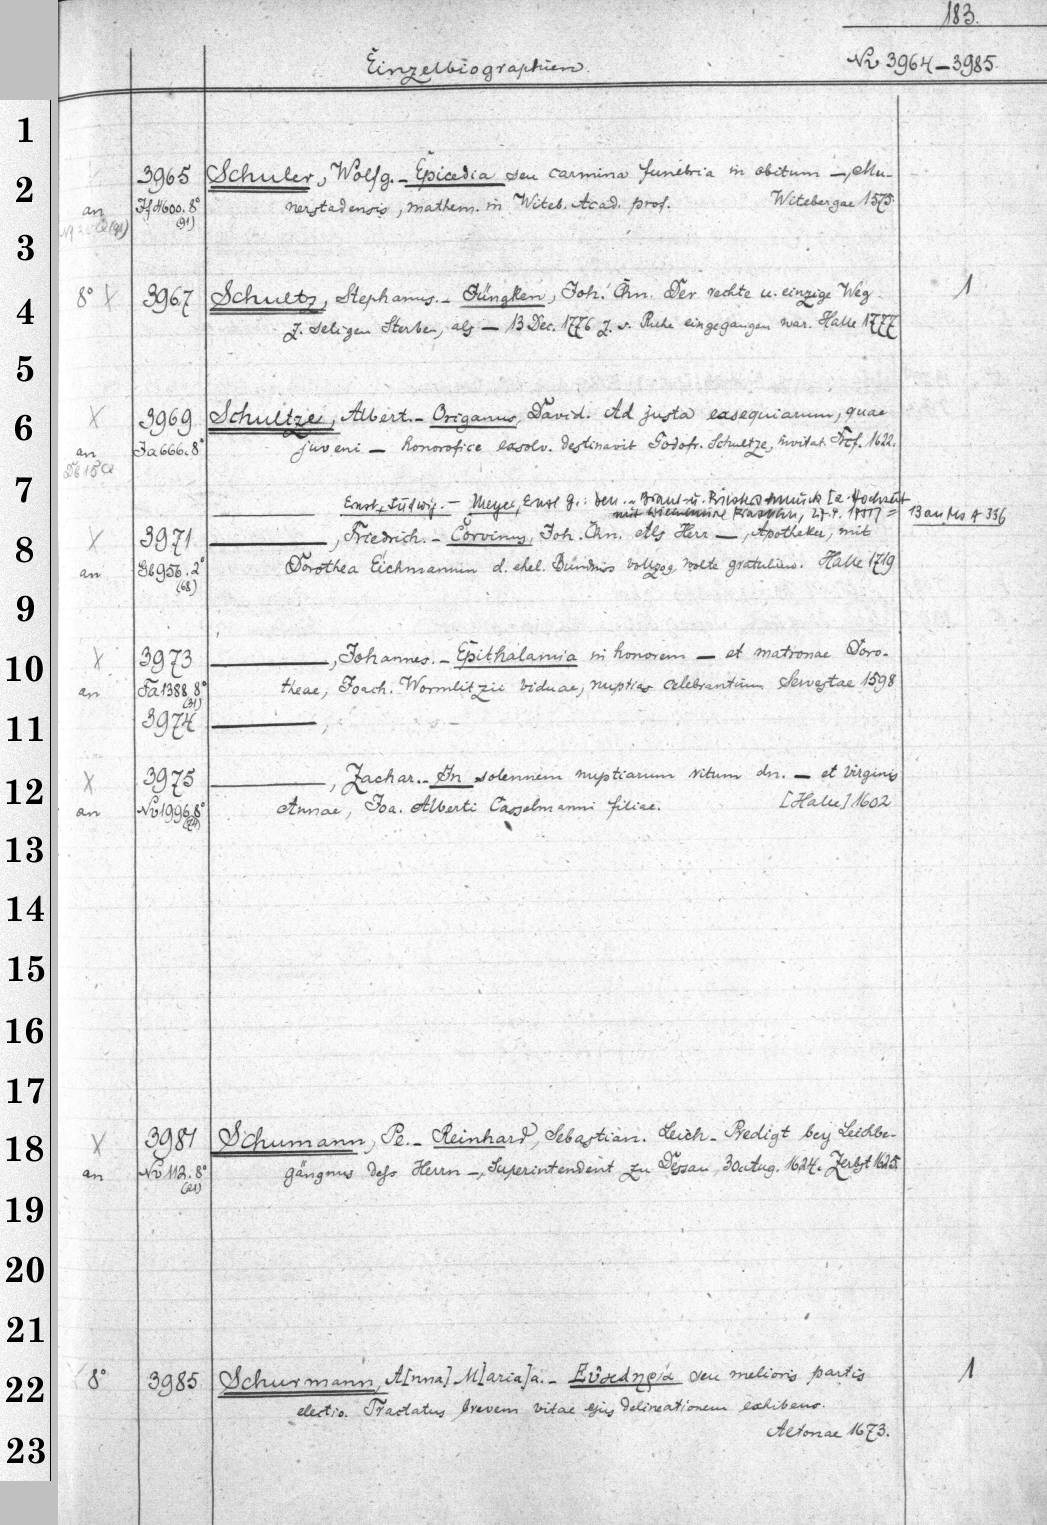 183.
Einzelbiographien.
Nr 3964–3985.
1
2
3965 Schuler, Wolfg. – Epicedia seu carmina funebria in obitum –, Mu-
an Jf 4600. 8° nerstadensis, mathem. in Witeb. Acad. prof. Witebergae 1575.
(91)
3
8° X 3967 Schultz, Stephanus. – Jüngken, Joh. Chn. Der rechte u. einzige Weg 1
4
z. seligen Sterben, als – 13 Dec. 1776 z. s. Ruhe eingegangen war. Halle 1777
5
X 3969 Schultze, Albert. – Origanus, David. Ad justa exsequiarum, quae
6
an Ja 666. 8° juveni – honorofice exsolv. destinavit Godofr. Schultze, invitat. Frcf. 1622.
7
Ernst Ludwig. – Meyer, Ernst G.: Den
13 an Ms A 336
X 3971 ———, Friedrich. – Corvinus, Joh. Chn. Als Herr –, Apotheker, mit
8
an Gb 956. 2° Dorothea Eichmannin d. ehel. Bündnis vollzog, wolte gratulirn. Halle 1719
(68)
9
X 3973 ———, Johannes. – Epithalamia in honorem – et matronae Doro-
10
an Ta 1388 8° theae, Joach. Wormlitzii viduae, nuptias celebrantium Servestae 1598
(31)
3974 ———,
11
X 3975 ———, Zachar. – In solennem nuptiarum ritum dn. – et virginis
12
an Nr 1996 8° Annae, Joa. Alberti Casselmanni filiae. [Halle] 1602
13
14
15
16
17
X 3981 Schumann, Pe. – Reinhard, Sebastian. Leich-Predigt bey Leichbe-
18
an Nr 112. 8° gängnus dess Herrn –, Superintendent zu Dessau, 30 Aug. 1624. Zerbst 1625.
(21)
19
20
21
8° 3985 Schurmann, A[nna] M[aria] a. – Εὐκληρία seu melioris partis 1
22
electio. Tractatus brevem vitae ejus delineationem exhibens.
Altonae 1673.
23